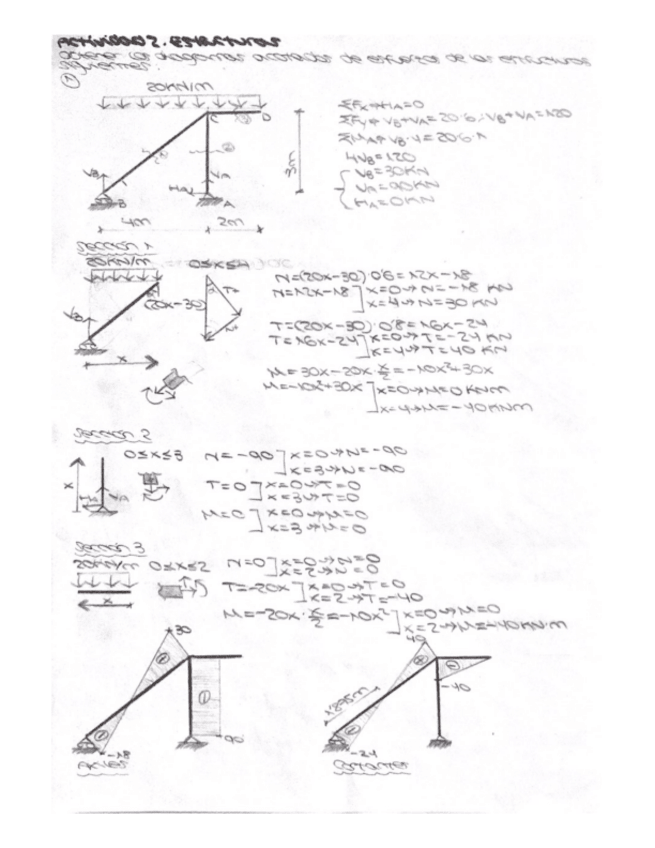 ACTIVIDAD 2. ESTRUCTURAS
Obtener los diagramas acotados de esfuerzo de las estructuras
siguientes:
①
20KN/m
C
D
3m
VB
VA
HA
B
A
4m
2m
ΣFx→HA=0
ΣFy→VB+VA=20·6→VB+VA=120
ΣMA→VB·4=20·6·1
4VB=120
VB=30KN
VA=90KN
HA=0KN
Sección 1
20KN/m
0≤x≤4
(20x-30)
VB
x
N=(20x-30)·0'6=12x-18
N=12x-18] x=0→N=-18 KN
x=4→N=30 KN
T=(20x-30)·0'8=16x-24
T=16x-24] x=0→T=-24 KN
x=4→T=40 KN
M=30x-20x·x/2=-10x²+30x
M=-10x²+30x] x=0→M=0KNm
x=4→M=-40KNm
Sección 2
0≤x≤3
x
HA
VA
N=-90] x=0→N=-90
x=3→N=-90
T=0] x=0→T=0
x=3→T=0
M=0] x=0→M=0
x=3→M=0
Sección 3
20KN/m
0≤x≤2
x
N=0] x=0→N=0
x=2→N=0
T=-20x] x=0→T=0
x=2→T=-40
M=-20x·x/2=-10x²] x=0→M=0
x=2→M=-40KN·m
30
-18
-90
Axiles
40
-40
1'875m
-24
Cortantes